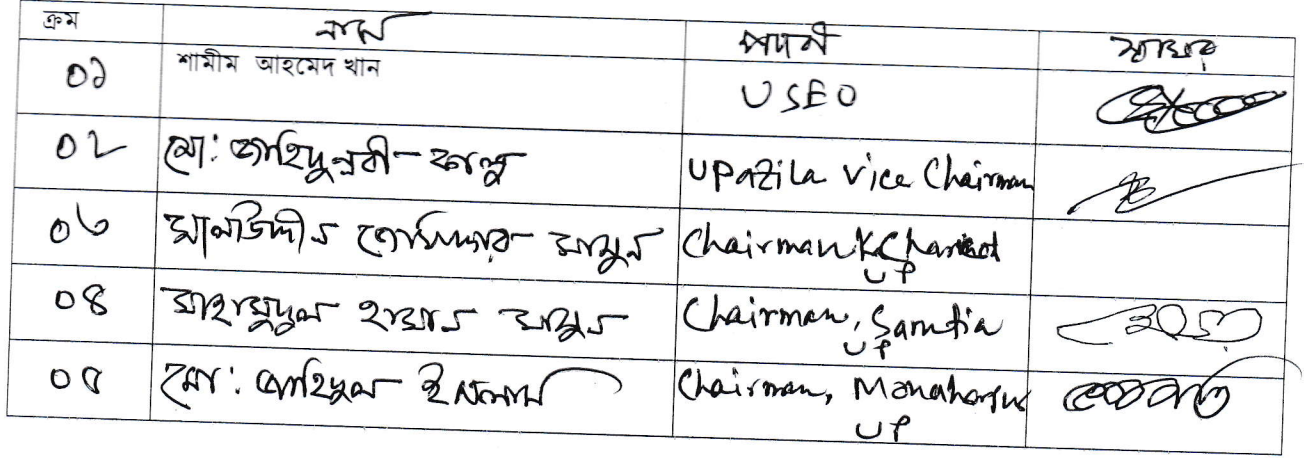 ক্রম নাম পদবী স্বাক্ষর
০১ শামীম আহমেদ খান USEO
০২ মো: জাহিদুন্নবী - কালু Upazila vice Chairman
০৩ মামুন Chairman
UP
০৪ মাহামুদুল হাসান মামুন Chairman, Samtia
UP
০৫ মো: জাহিদুল ইসলাম Chairman, Monaharpur
UP